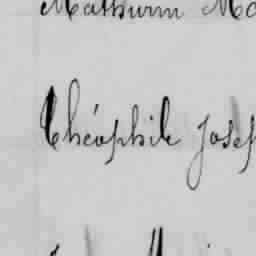 Mathurin Ma
Théophile Josep